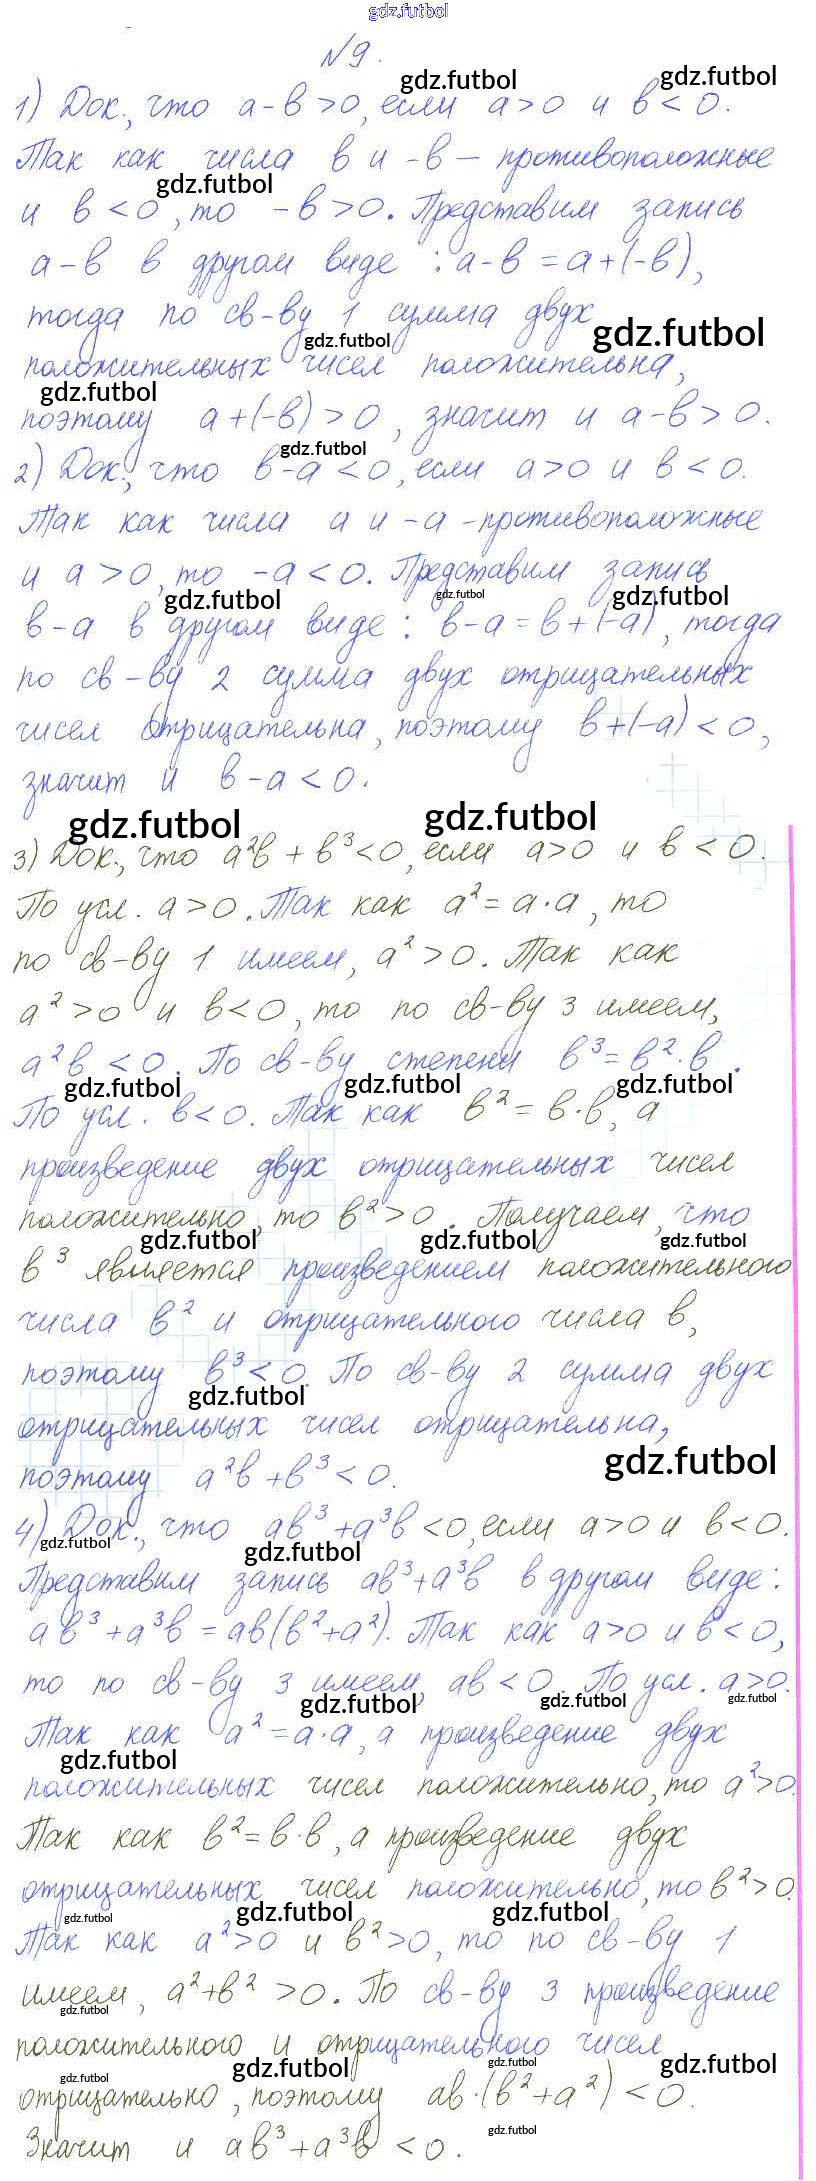 gdz.futbol
№9.
gdz.futbol gdz.futbol
1) Док., что a-b>0, если a>0 и b<0.
Так как числа b и -b – противоположные
gdz.futbol
и b<0, то -b>0. Представим запись
a-b в другом виде: a-b=a+(-b),
тогда по св-ву 1 сумма двух
gdz.futbol gdz.futbol
положительных чисел положительна,
gdz.futbol
поэтому a+(-b)>0, значит и a-b>0.
gdz.futbol
2) Док., что b-a<0, если a>0 и b<0.
Так как числа a и -a -противоположные
и a>0, то -a<0. Представим запись
gdz.futbol gdz.futbol gdz.futbol
b-a в другом виде: b-a=b+(-a), тогда
по св-ву 2 сумма двух отрицательных
чисел отрицательна, поэтому b+(-a)<0,
значит и b-a<0.
gdz.futbol gdz.futbol
3) Док., что a²b+b³<0, если a>0 и b<0.
По усл. a>0. Так как a²=a·a, то
по св-ву 1 имеем, a²>0. Так как
a²>0 и b<0, то по св-ву 3 имеем,
a²b<0. По св-ву степени b³=b²·b.
gdz.futbol gdz.futbol gdz.futbol
По усл. b<0. Так как b²=b·b, а
произведение двух отрицательных чисел
положительно, то b²>0. Получаем, что
gdz.futbol gdz.futbol gdz.futbol
b³ является произведением положительного
числа b² и отрицательного числа b,
поэтому b³<0. По св-ву 2 сумма двух
gdz.futbol
отрицательных чисел отрицательна,
gdz.futbol
поэтому a²b+b³<0.
4) Док., что ab³+a³b<0, если a>0 и b<0.
gdz.futbol gdz.futbol
Представим запись ab³+a³b в другом виде:
ab³+a³b=ab(b²+a²). Так как a>0 и b<0,
то по св-ву 3 имеем, ab<0. По усл. a>0.
gdz.futbol gdz.futbol gdz.futbol
Так как a²=a·a, а произведение двух
gdz.futbol
положительных чисел положительно, то a²>0.
Так как b²=b·b, а произведение двух
отрицательных чисел положительно, то b²>0.
gdz.futbol gdz.futbol gdz.futbol
Так как a²>0 и b²>0, то по св-ву 1
имеем, a²+b²>0. По св-ву 3 произведение
gdz.futbol
положительного и отрицательного чисел
gdz.futbol gdz.futbol gdz.futbol gdz.futbol
отрицательно, поэтому ab·(b²+a²)<0.
gdz.futbol
Значит и ab³+a³b<0.